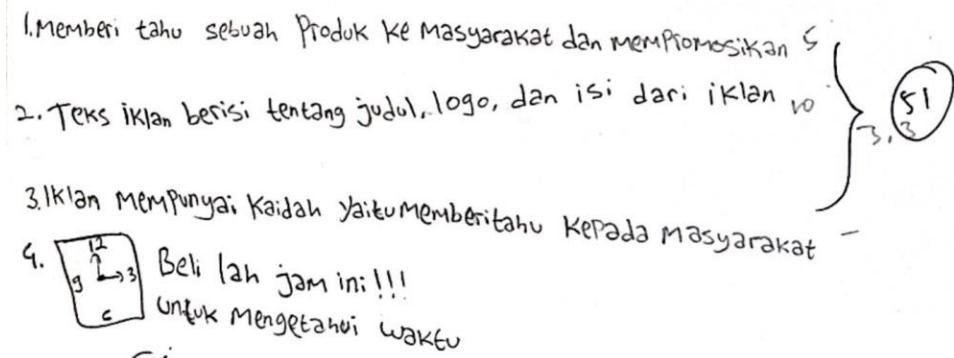 1. Memberi tahu sebuah Produk ke Masyarakat dan memPromosikan 5
2. Teks iklan berisi tentang judul, logo, dan isi dari iklan 10
3,3
51
3. Iklan MemPunyai Kaidah yaitu Memberitahu KePada Masyarakat -
4.
12
9 3
Beli lah jam ini!!!
untuk Mengetahui waktu